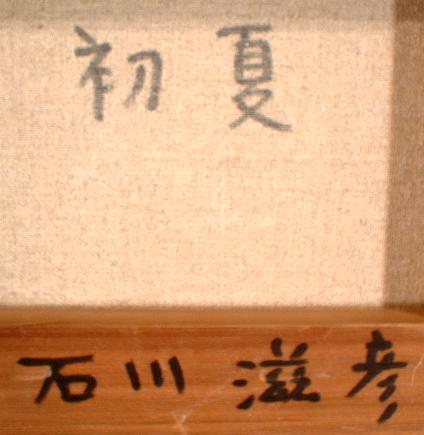 初夏
石川 滋彦